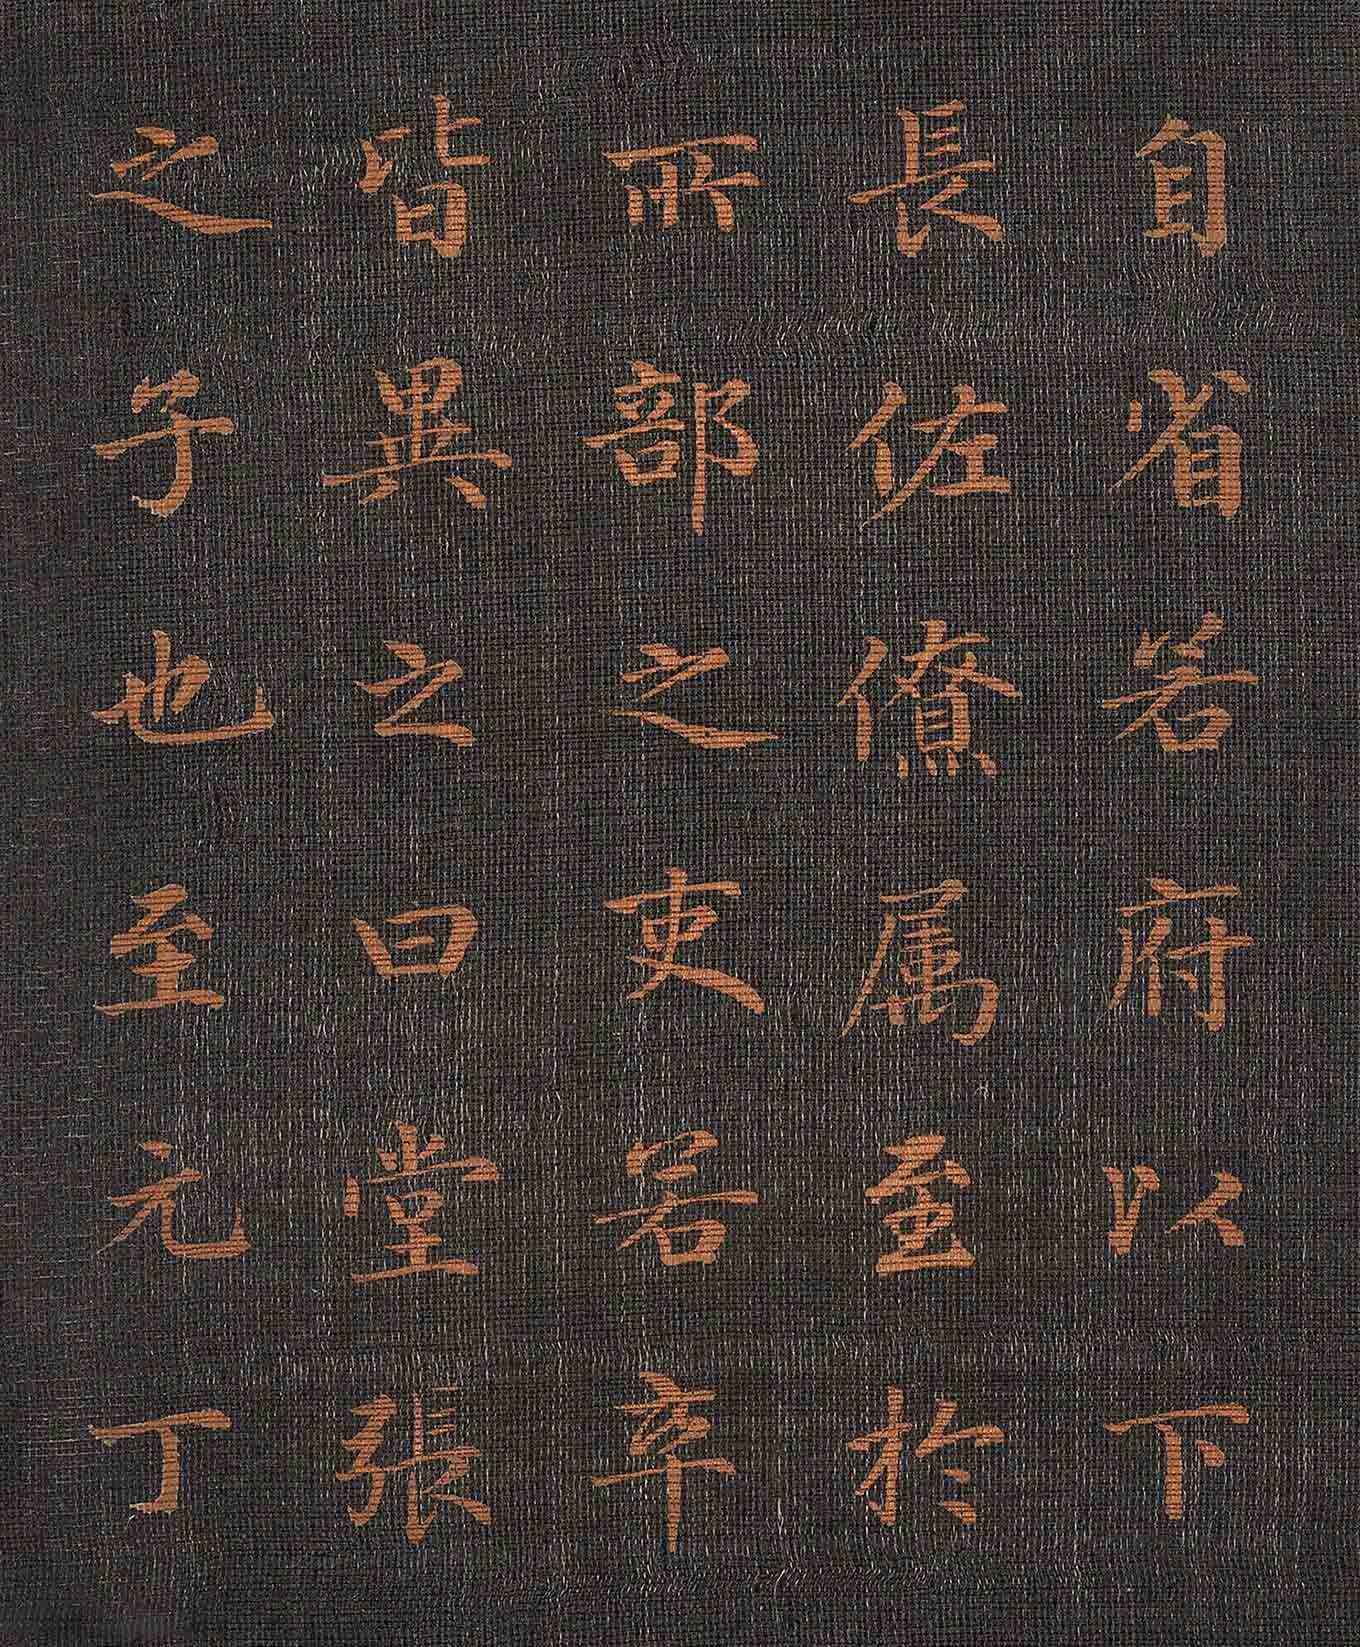 自省若府以下
長佐僚属至於
所部之吏若卒
皆異之曰堂張
之子也至元丁